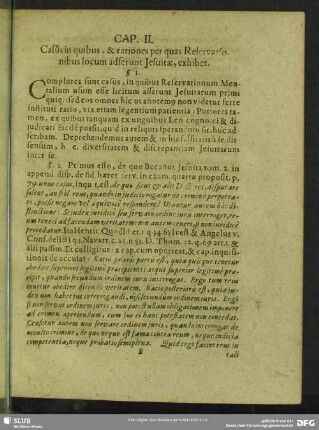 CAP. II.
Casus in quibus, & rationes per quas Reservatio
nibus locum adserunt Jesuitæ, exhibet.
§ 1.
Complures sunt casus, in quibus Reservationum Men-
talium usum esse licitum asserunt Jesuitarum primi
quiq; sed eos omnes hic ut annotem non videtur ferre
instituti ratio, vix etiam legentium patientia: Potiores ta-
men, ex quibus tanquam ex unguibus Leo cognosci & di-
judicari facile possit, quid in reliquis sperandum sit, huc ad-
scribam. Deprehendemus autem & in his
sensum, h e. diversitatem & discrepantiam Jesuitarum
inter se.
§. 2. Primus esto, de quo Becanus Jesuita tom. 2. in
append. disp. de fid. hæret. serv. in exam. quartæ proposit. p.
79. unus casus, inquit, est, de quo sicut & alii D D res, disputare
solent, an fas reus, quando in judicio rogatur de crimine perpetra-
to, possit negare vel æquivocè respondere? Utuntur autem hac di-
stinctione: Si index juridicè seu servato ordine juris interroget, re-
um teneri ad fatendum veritatem: non autem teneri, si non juridicè
procedatur. Ita Henric. Quodlib et. 1 q 34 Sylvest. & Angelus v.
Conf. delicti q 1. Navarr. c. 25. n 51. D. Thom. 22. q. 69 art. 1. &
alii passim. Et colligitur ex cap. cum oporteat, & cap. inquisi-
tionis de accusat: Ratio prioris partis est, quia quisque tenetur
obedire superiori legitimè præcipienti: atqui superior legitimè præ-
cipit, quando servato ordine juris interrogat. Ergo tum reus
tenetur obedire dicendo veritatem. Ratio posterioris est, quia ju-
dex non habet jus interrogandi, nisi secundum ordinem juris. Ergo
si non servat ordinem juris, non potest ullam obligationem imponere
ad crimen aperiendum, cum jus ei hanc potestatem non concedat.
Censetur autem non servare ordinem juris, quando interrogat de
occulto crimine, de quo neque est fama contra reum, neque indicia
competentia, neque probatio semiplena. Quid ergo faciet reus in
B tali